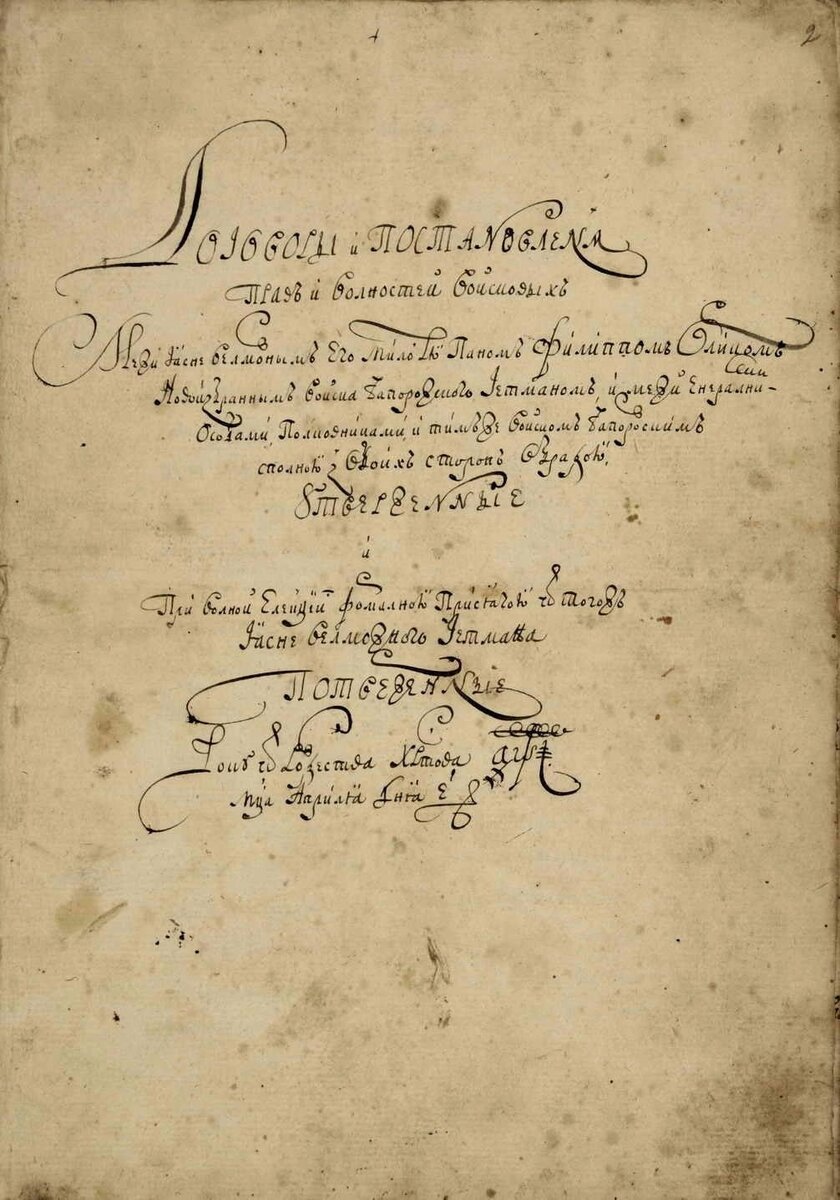 2
Договоры и Постановленя
Правъ и волностей войсковыхъ
Межи Ясне велможнымъ Его Милостю Паномъ Филиппомъ Орликомъ
Новоизбраннымъ войска Запорозкого Гетманомъ, и межи Енералними
Особами Полковниками и тимъже войскомъ Запорозскимъ
сполною з обоихъ сторонъ обрадою,
Утверженные
и
При волной Елекции формалною Присягою ѿ тогожъ
Ясне велможного Гетмана
Потверженные
Року ѿ Рожества Христова ҂аѱ҃і
мца Априля дня е҃